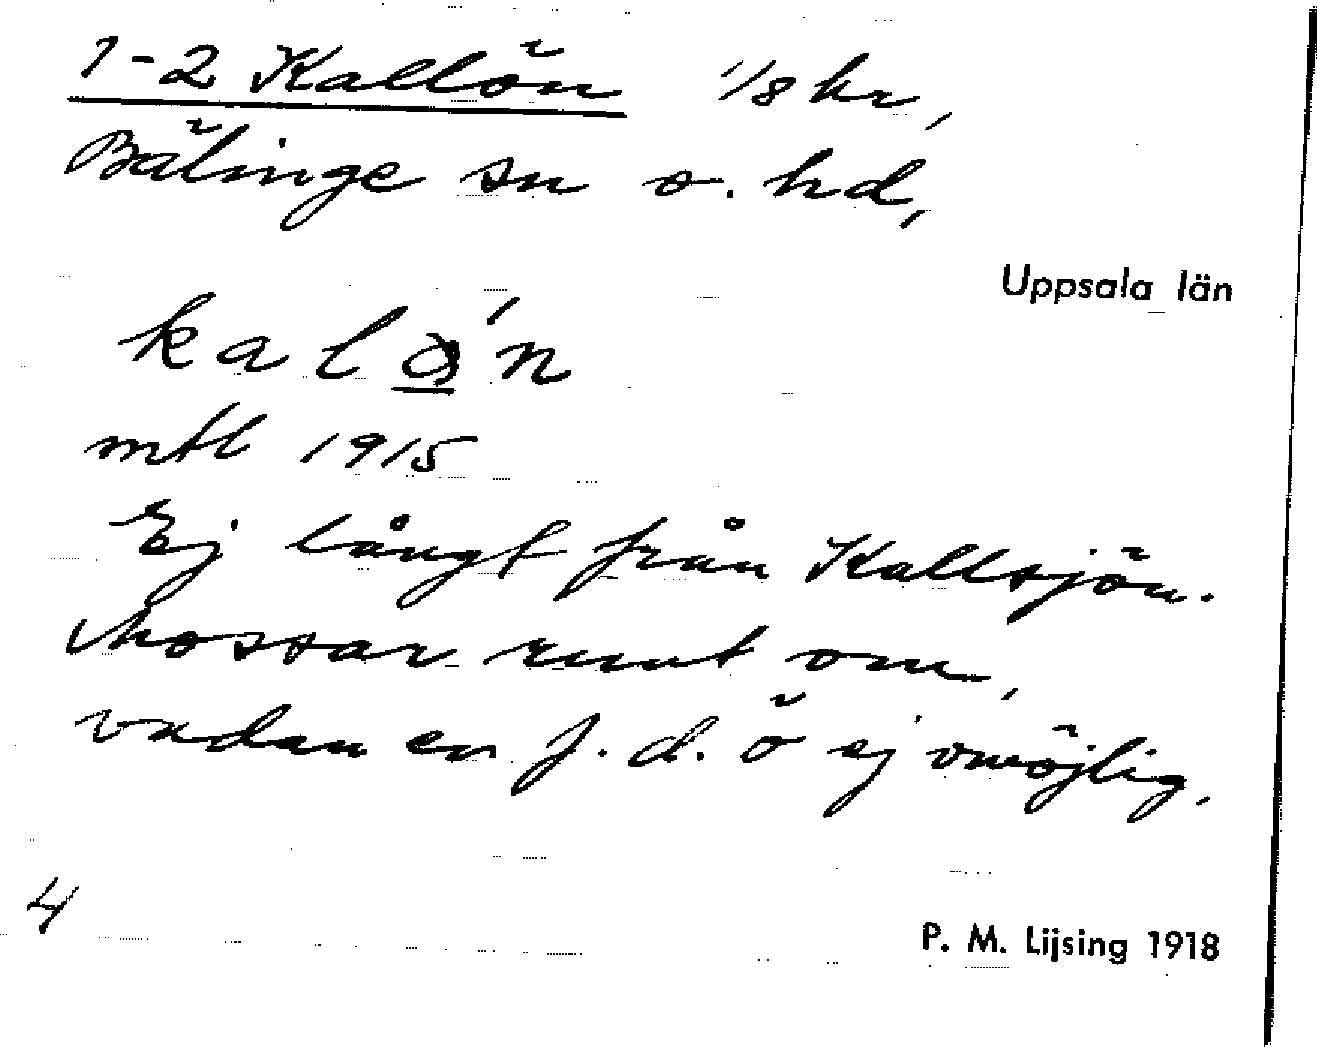 1-2 Kallön 1/8 kr,
Bälinge sn o. hd,
Uppsala län
k a l ǫ́ n
mtl 1915
Ej långt från Kallsjön.
Mossar runt om,
vadan en f. d. ö ej omöjlig.
4
P. M. Lijsing 1918